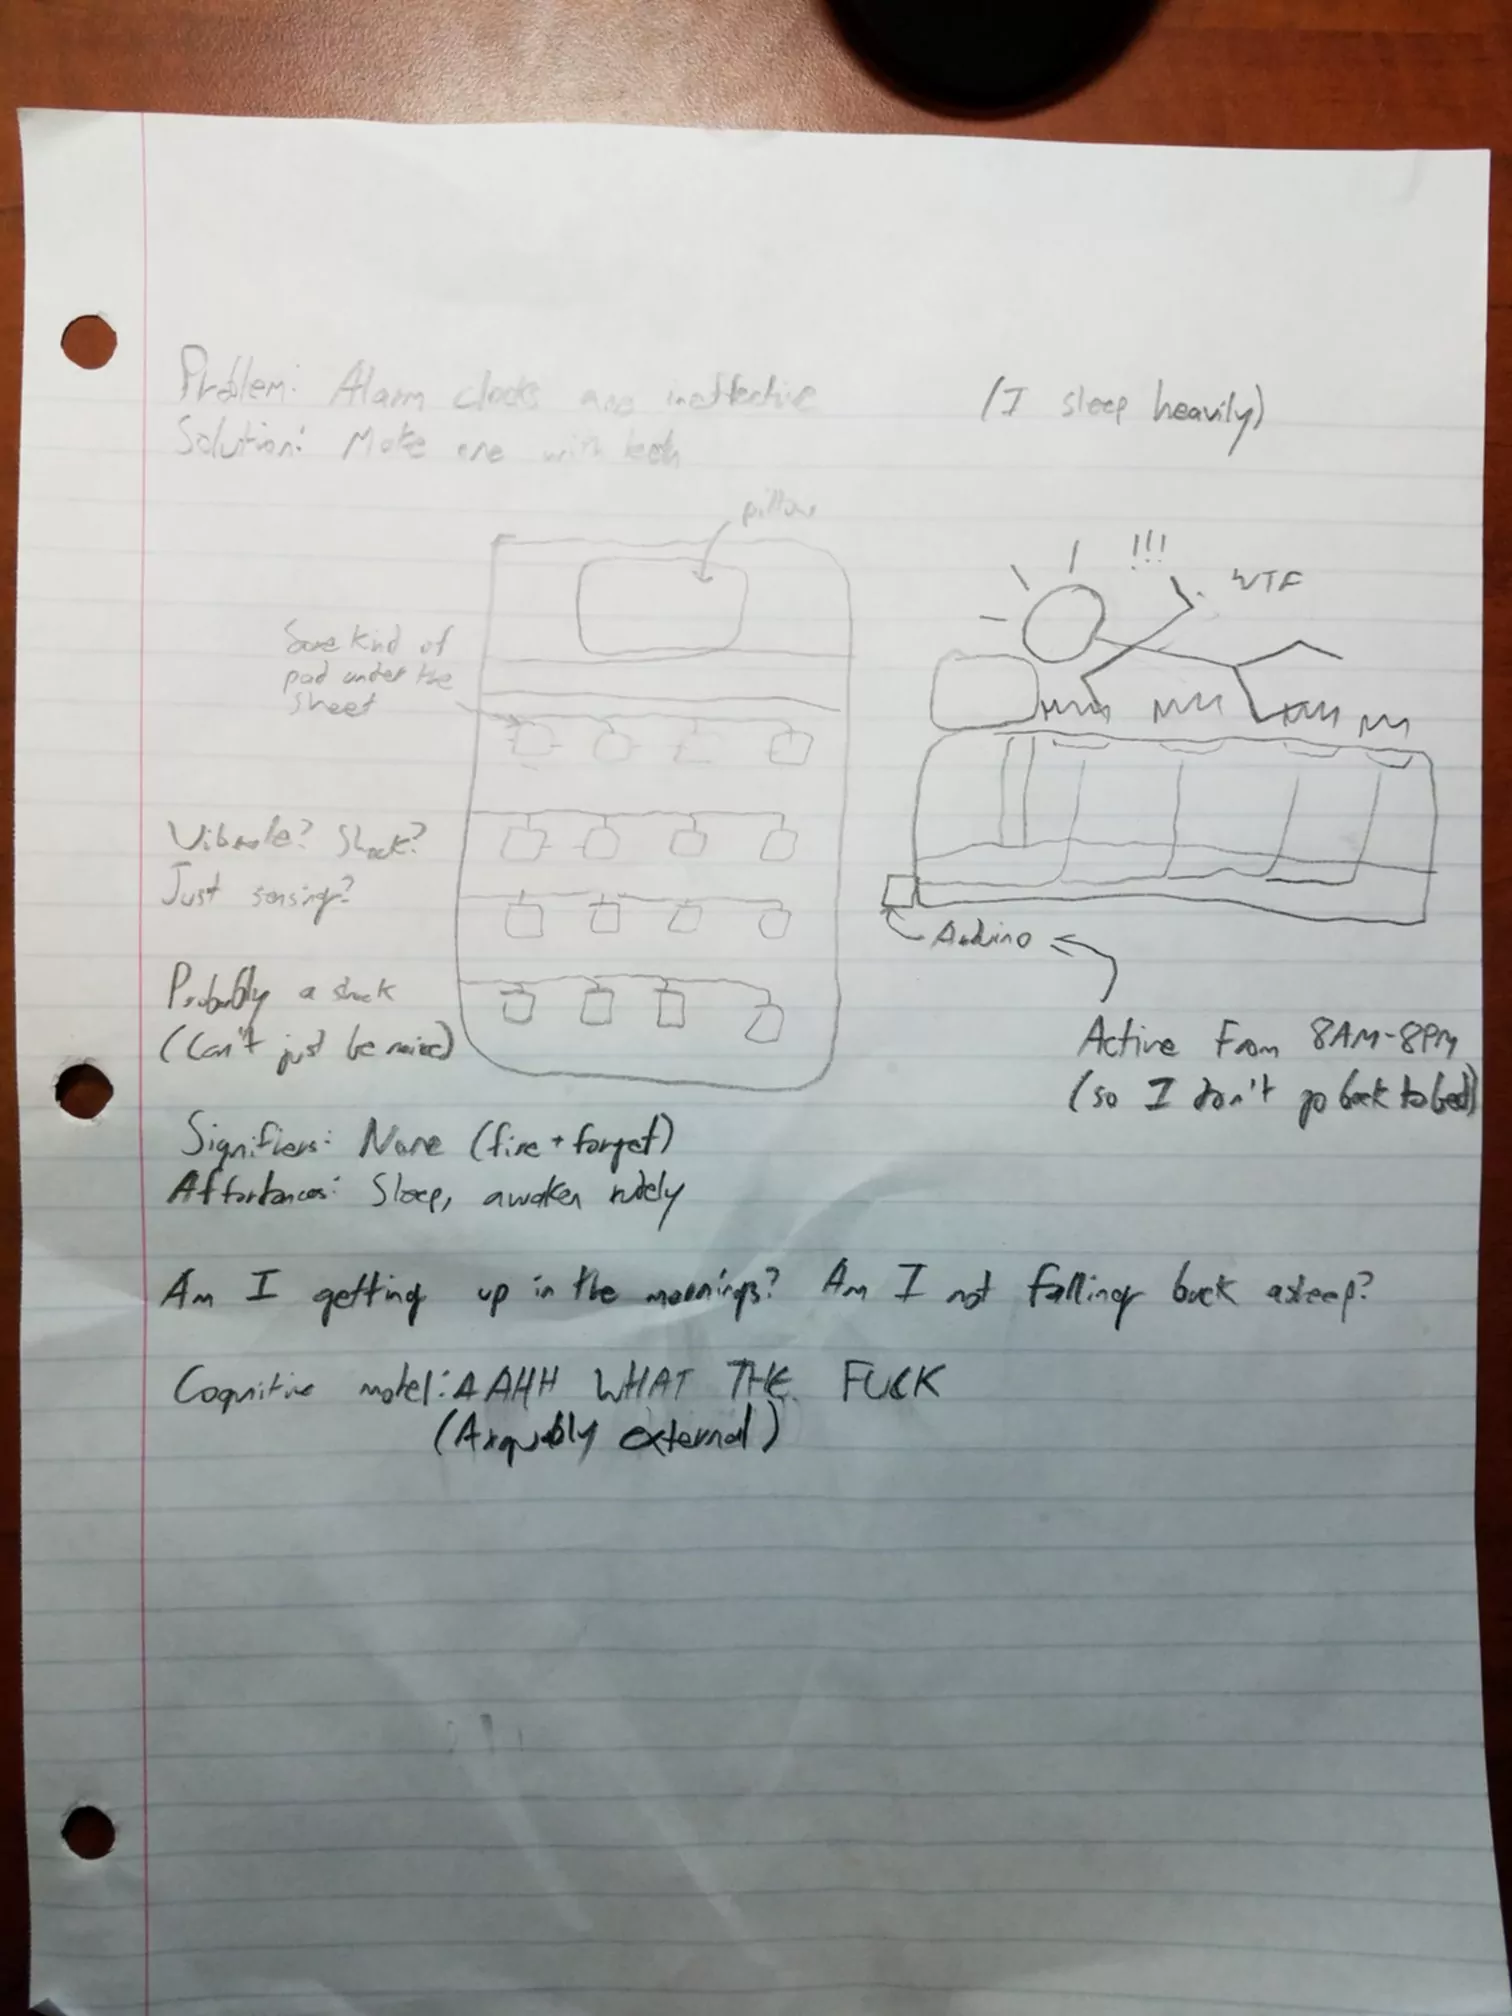 Problem: Alarm clocks are ineffective
(I sleep heavily)
Solution: Make one with teeth
pillow
!!!
WTF
Some kind of
pad under the
sheet
Vibrate? Shock?
Just sensing?
Arduino
Probably a shock
(Can't just be noise)
Active From 8AM-8PM
(so I don't go back to bed)
Signifiers: None (fire + forget)
Affordances: Sleep, awaken rudely
Am I getting up in the mornings? Am I not falling back asleep?
Cognitive model: AAHH WHAT THE FUCK
(Arguably external)